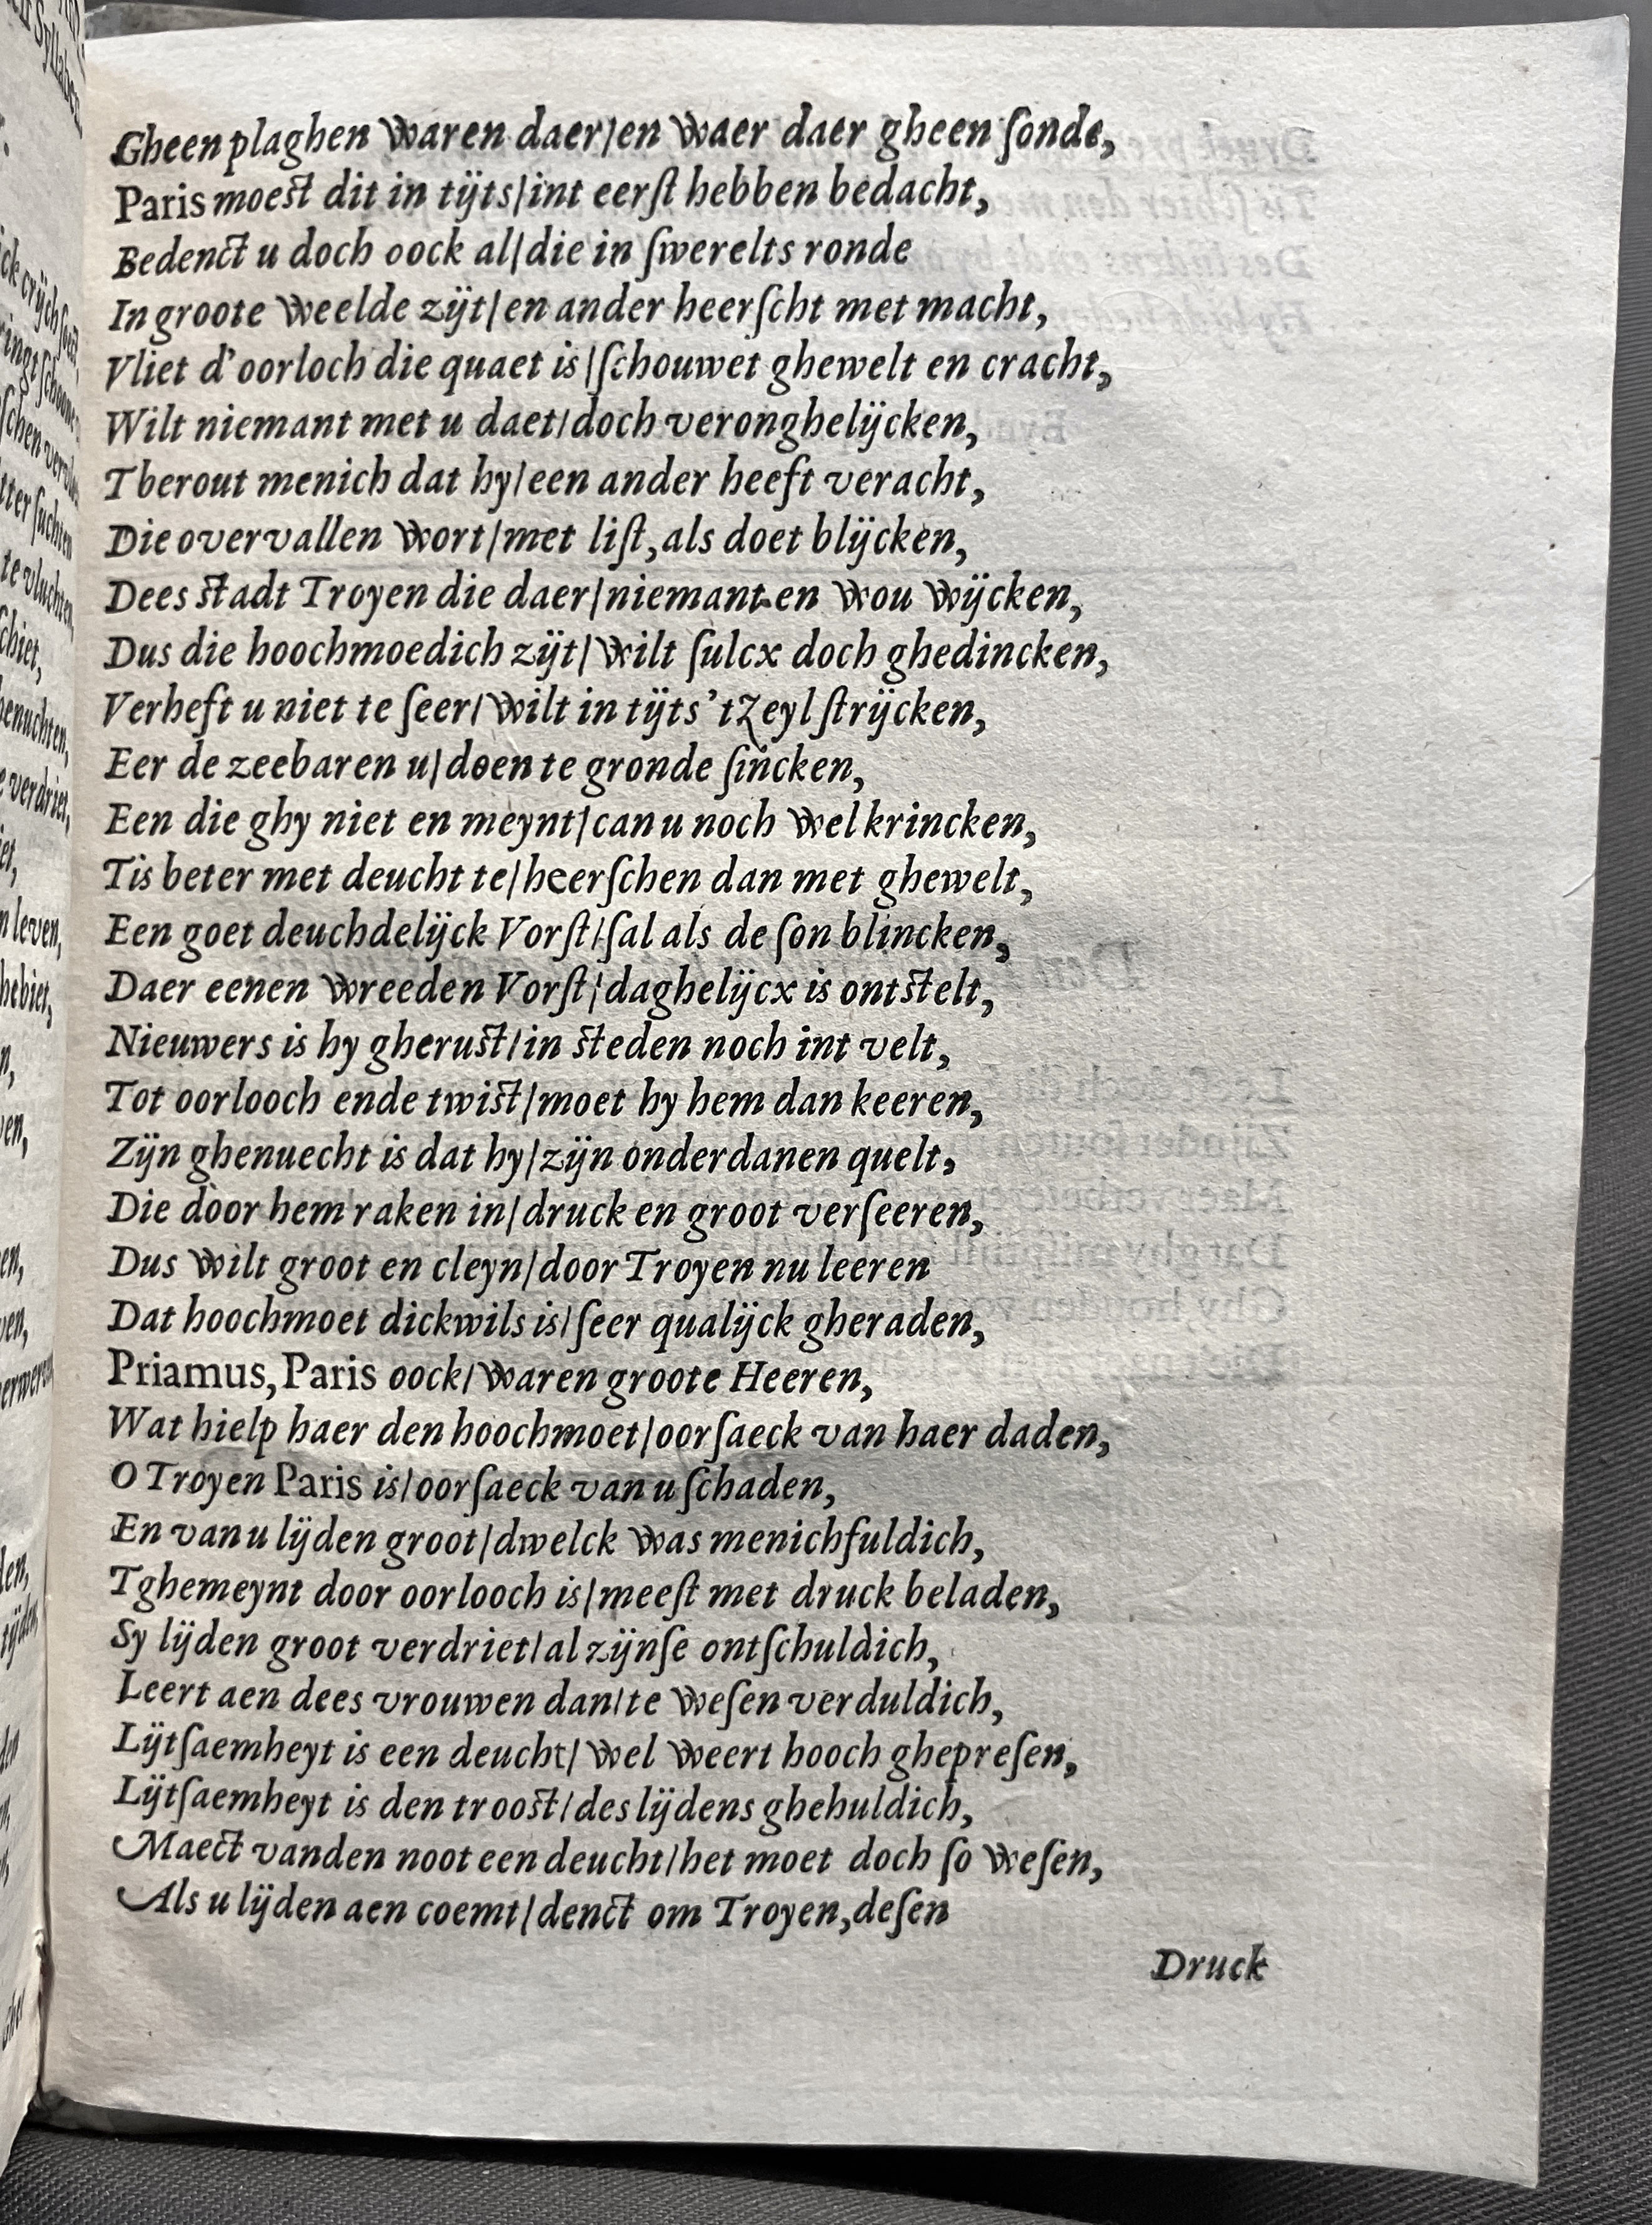 Gheen plaghen waren daer/en waer daer gheen ſonde,
Paris moeſt dit in tijts/int eerſt hebben bedacht,
Bedenct u doch oock al/die in ſwerelts ronde
In groote weelde zijt/en ander heerſcht met macht,
Vliet d'oorloch die quaet is/ſchouwet ghewelt en cracht,
Wilt niemant met u daet/doch veronghelijcken,
Tberout menich dat hy/een ander heeft veracht,
Die overvallen wort/met liſt, als doet blijcken,
Dees ſtadt Troyen die daer/niemant en wou wijcken,
Dus die hoochmoedich zijt/wilt ſulcx doch ghedincken,
Verheft u niet te ſeer/wilt in tijts 't Zeyl ſtrijcken,
Eer de zeebaren u/doen te gronde ſincken,
Een die ghy niet en meynt/can u noch wel krincken,
Tis beter met deucht te/heerſchen dan met ghewelt,
Een goet deuchdelijck Vorſt/ſal als de ſon blincken,
Daer eenen wreeden Vorſt/daghelijcx is ontſtelt,
Nieuwers is hy gheruſt/in ſteden noch int velt,
Tot oorlooch ende twiſt/moet hy hem dan keeren,
Zijn ghenuecht is dat hy/zijn onderdanen quelt,
Die door hem raken in/druck en groot verſeeren,
Dus wilt groot en cleyn/door Troyen nu leeren
Dat hoochmoet dickwils is/ſeer qualijck gheraden,
Priamus, Paris oock/waren groote Heeren,
Wat hielp haer den hoochmoet/oorſaeck van haer daden,
O Troyen Paris is/oorſaeck van u ſchaden,
En van u lijden groot/dwelck was menichfuldich,
Tghemeynt door oorlooch is/meeſt met druck beladen,
Sy lijden groot verdriet/al zijnſe ontſchuldich,
Leert aen dees vrouwen dan/te weſen verduldich,
Lijtſaemheyt is een deucht/wel weert hooch ghepreſen,
Lijtſaemheyt is den trooſt/des lijdens ghehuldich,
Maect vanden noot een deucht/het moet doch ſo weſen,
Als u lijden aen coemt/denct om Troyen, deſen
Druck